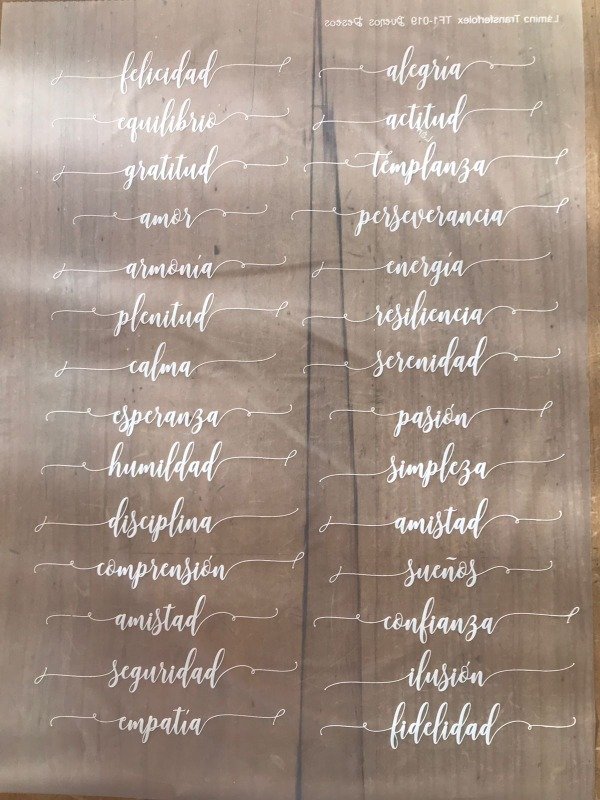 Lámina Transferfolex TF1-019 Buenos Deseos
felicidad
equilibrio
gratitud
amor
armonía
plenitud
calma
esperanza
humildad
disciplina
comprensión
amistad
seguridad
empatía
alegría
actitud
templanza
perseverancia
energía
resiliencia
serenidad
pasión
simpleza
amistad
sueños
confianza
ilusión
fidelidad